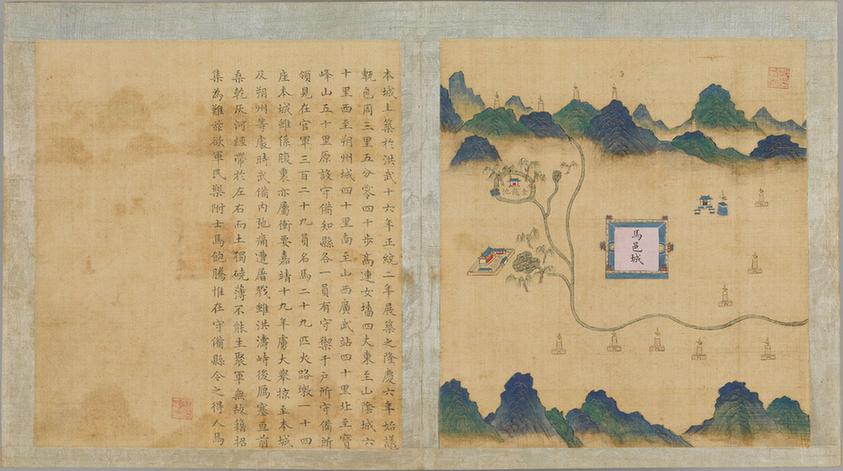 本城土築於洪武十六年正統二年展築之隆慶六年始議
甎包周三里五分零四十步高連女墻四丈東至山陰城六
十里西至朔州城四十里南至山西廣武站四十里北至寶
峰山五十里原設守備知縣各一員有守禦千戶所守備所
領見在官軍三百二十九員名馬二十九匹火路墩一十四
座本城雖係腹裏亦屬衝要嘉靖十九年虜大舉掠至本城
及朔州等處時武備內弛痛遭屠戮雖洪濤峙後鴈塞亘前
桑乾灰河經帶於左右而土獨磽薄不能生聚軍無故籍招
集為難茲欲軍民樂附士馬飽騰惟在守備縣令之得人焉
馬邑城
金龍池